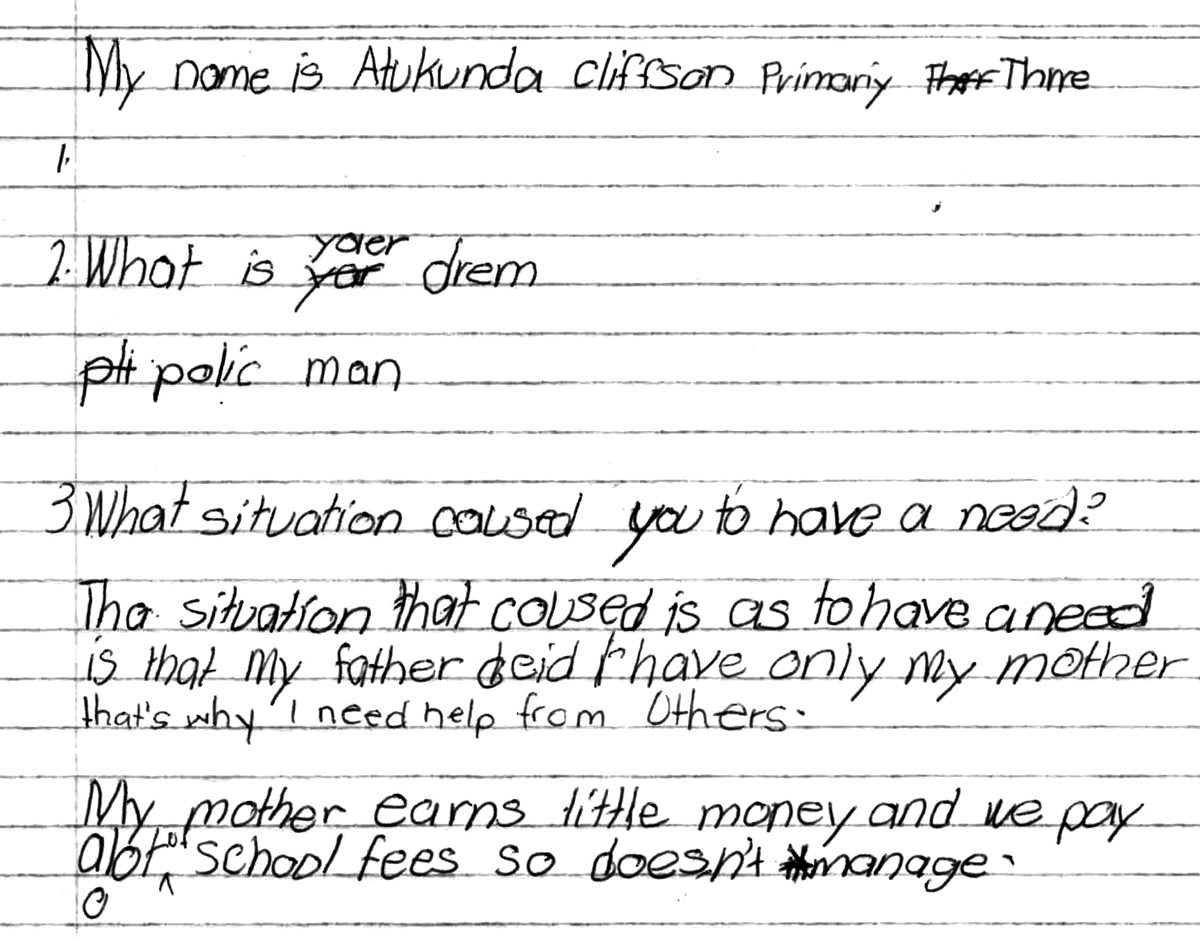 My name is Atukunda Cliffson Primariy Thrre
1.
2. What is yoer drem
polic man
3 What situation caused you to have a need?
Tha situation that coused is as to have a need
is that My father deid I have only My mother
that's why I need help from Others.
My mother earns little money and we pay
alot of school fees so doesn't manage.